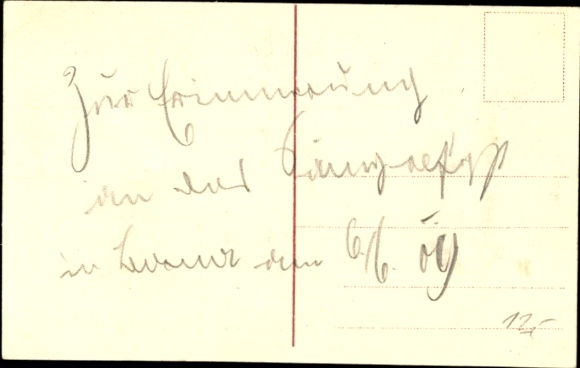 Zur Erinnerung
an das Sängerfest
in den 6/6. 09
12,-